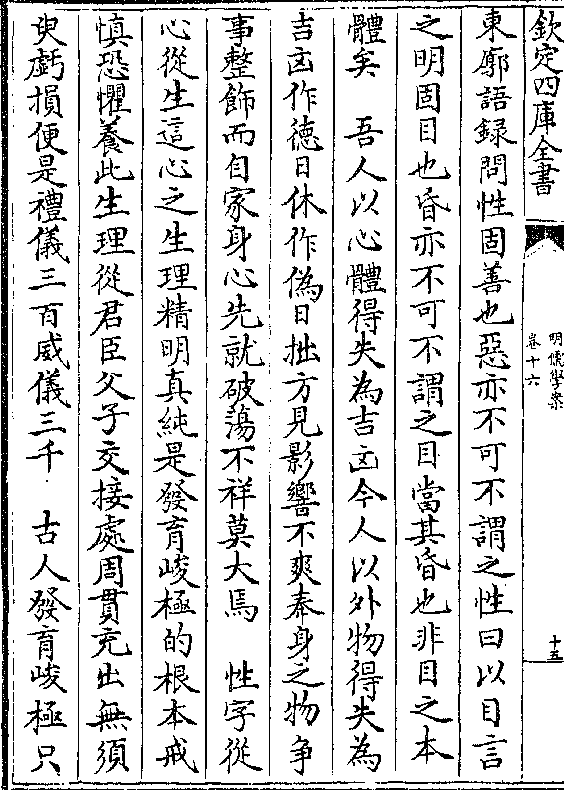 欽定四庫全書
明儒學案
卷十六
十五
東廓語録問性固善也惡亦不可不謂之性曰以目言
之明固目也昏亦不可不謂之目當其昏也非目之本
體矣　吾人以心體得失為吉凶今人以外物得失為
吉凶作德日休作偽日拙方見影響不爽奉身之物爭
事整飾而自家身心先就破蕩不祥莫大焉　性字從
心從生這心之生理精明真純是發育峻極的根本戒
慎恐懼養此生理從君臣父子交接處周貫充出無須
臾虧損便是禮儀三百威儀三千　古人發育峻極只